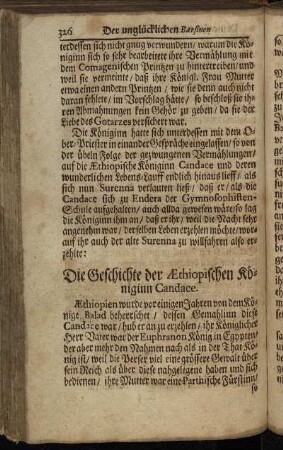 326 Der unglücklichen Barsinen
terdessen sich nicht gnug verwundern / warum die Kö-
niginn sich so sehr bearbeitete ihre Vermählung mit
dem Comagenischen Printzen zu hintertreiben / und
weil sie vermeinte / daß ihre Königl. Frau Mutter
etwa einen andern Printzen / wie sie denn auch nicht
daran fehlete / im Vorschlag hätte / so beschloß sie ih-
ren Abmahnungen kein Gehör zu geben / da sie der
Liebe des Gotarzes versichert war.
Die Königinn hatte sich unterdessen mit dem O-
ber-Priester in einander Gespräche eingelassen / so von
der übeln Folge der gezwungenen Vermählungen /
auf die Æthiopische Königinn Candace und deren
wunderlichen Lebens-Lauff endlich hinaus lieff / als
sich nun Surenna verlauten ließ / daß er / als die
Candace sich zu Endera der Gymnosophisten-
Schule aufgehalten / auch alda gewesen wäre / so lag
die Königinn ihm an / daß er ihr / weil die Nacht sehr
angenehm war / derselben Leben erzehlen möchte / wor-
auf ihr auch der alte Surenna zu willfahren also er-
zehlte:
Die Geschichte der Æthiopischen Kö-
niginn Candace.
Æthiopien wurde vor einigen Jahren von dem Kö-
nige Balad beherrschet / dessen Gemahlinn diese
Candace war / hub er an zu erzehlen / ihr Königlicher
Herr Vater war der Euphranon König in Egypten /
der aber mehr den Nahmen nach als in der That Kö-
nig ist / weil die Perser viel eine grössere Gewalt über
sein Reich als über diese nahgelegene haben und sich
bedienen / ihre Mutter war eine Parthische Fürstinn /
so